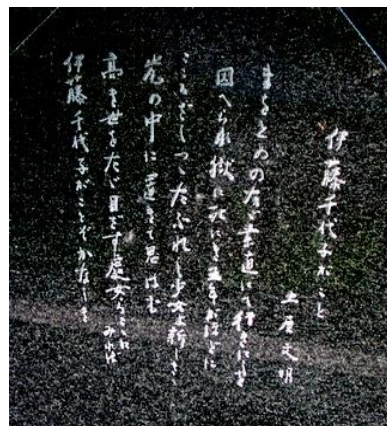 伊藤千代子がこと
土屋文明
まをとめのただ素直にて行きにしを
囚へられ獄に死にき五年がほどに
こころざしつつたふれし少女よ新しき
光の中に置きて思はむ
高き世をただ目ざす處女らここに
みれば
伊藤千代子がことぞかなしき